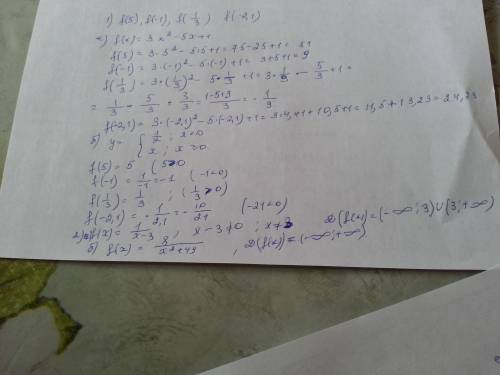 1) f(5), f(-1), f(1/3) f(-2,1)
a) f(x) = 3x² - 5x + 1
f(5) = 3·5² - 5·5 + 1 = 75 - 25 + 1 = 51
f(-1) = 3·(-1)² - 5·(-1) + 1 = 3 + 5 + 1 = 9
f(1/3) = 3·(1/3)² - 5·1/3 + 1 = 3·1/9 - 5/3 + 1 =
= 1/3 - 5/3 + 3/3 = (1-5+3)/3 = -1/3
f(-2,1) = 3·(-2,1)² - 5·(-2,1) + 1 = 3·4,41 + 10,5 + 1 = 11,5 + 13,23 = 24,73
б) y = { 1/x ; x<0
x ; x ≥ 0
f(5) = 5 (5>0)
f(-1) = 1/-1 = -1 (-1<0)
f(1/3) = 1/3 ; (1/3 > 0)
f(-2,1) = -1/2,1 = -10/21 (-2,1<0)
2) a) f(x) = 1/(x-3) , x - 3 ≠ 0 ; x ≠ 3 D(f(x)) = (-∞; 3) ∪ (3; +∞)
б) f(x) = /(x²+49) , D(f(x)) = (-∞; +∞)